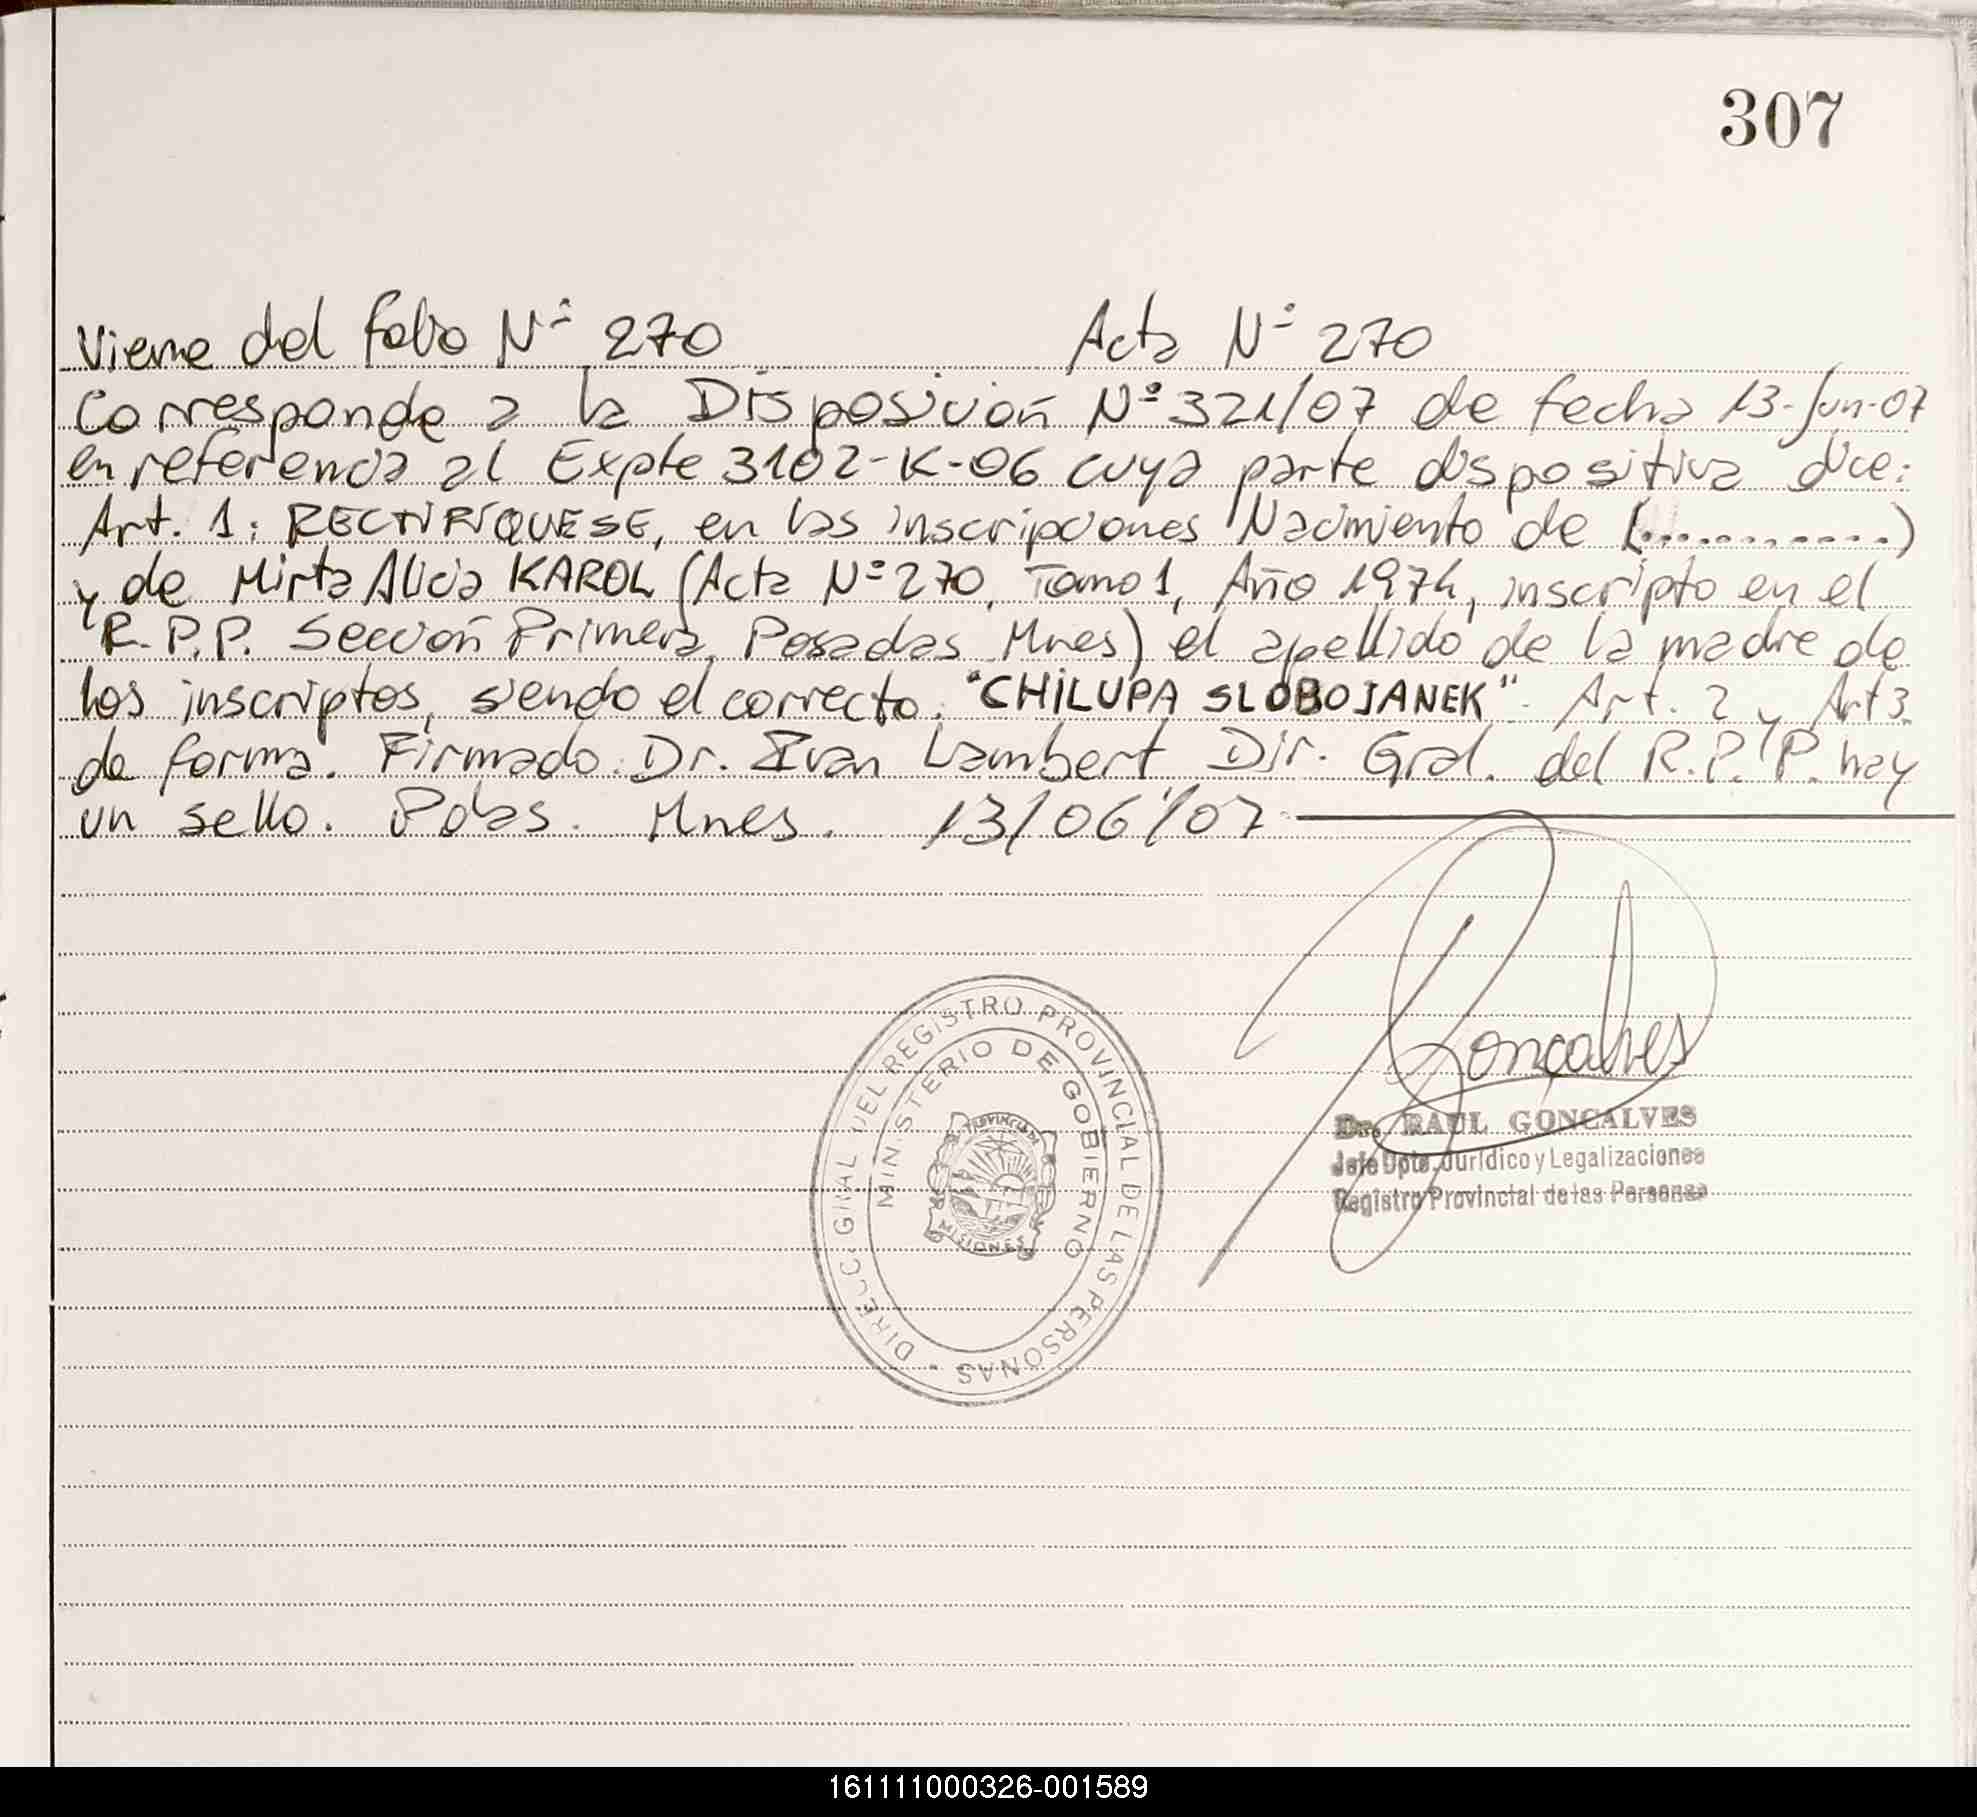 307
Viene del folio Nº 270 Acta Nº 270
Corresponde a la Disposición Nº 321/07 de fecha 13-Jun-07
en referencia al Expte 3102-K-06 cuya parte dispositiva dice:
Art. 1: RECTIFÍQUESE, en las inscripciones Nacimiento de (............)
y de Mirta Alicia KAROL (Acta Nº 270, Tomo 1, Año 1974, inscripto en el
R.P.P. Sección Primera, Posadas Mnes) el apellido de la madre de
los inscriptos, siendo el correcto: "CHILUPA SLOBOJANEK". Art. 2 y Art 3.
de forma. Firmado: Dr. Ivan Lambert Dir. Gral. del R.P.P. hay
un sello. Pdas. Mnes. 13/06/07
Goncalves
Dr. RAUL GONCALVES
Jefe Dpto. Jurídico y Legalizaciones
Registro Provincial de las Personas
DIRECC. GRAL DEL REGISTRO PROVINCIAL DE LAS PERSONAS
MINISTERIO DE GOBIERNO
PROVINCIA DE
MISIONES
161111000326-001589